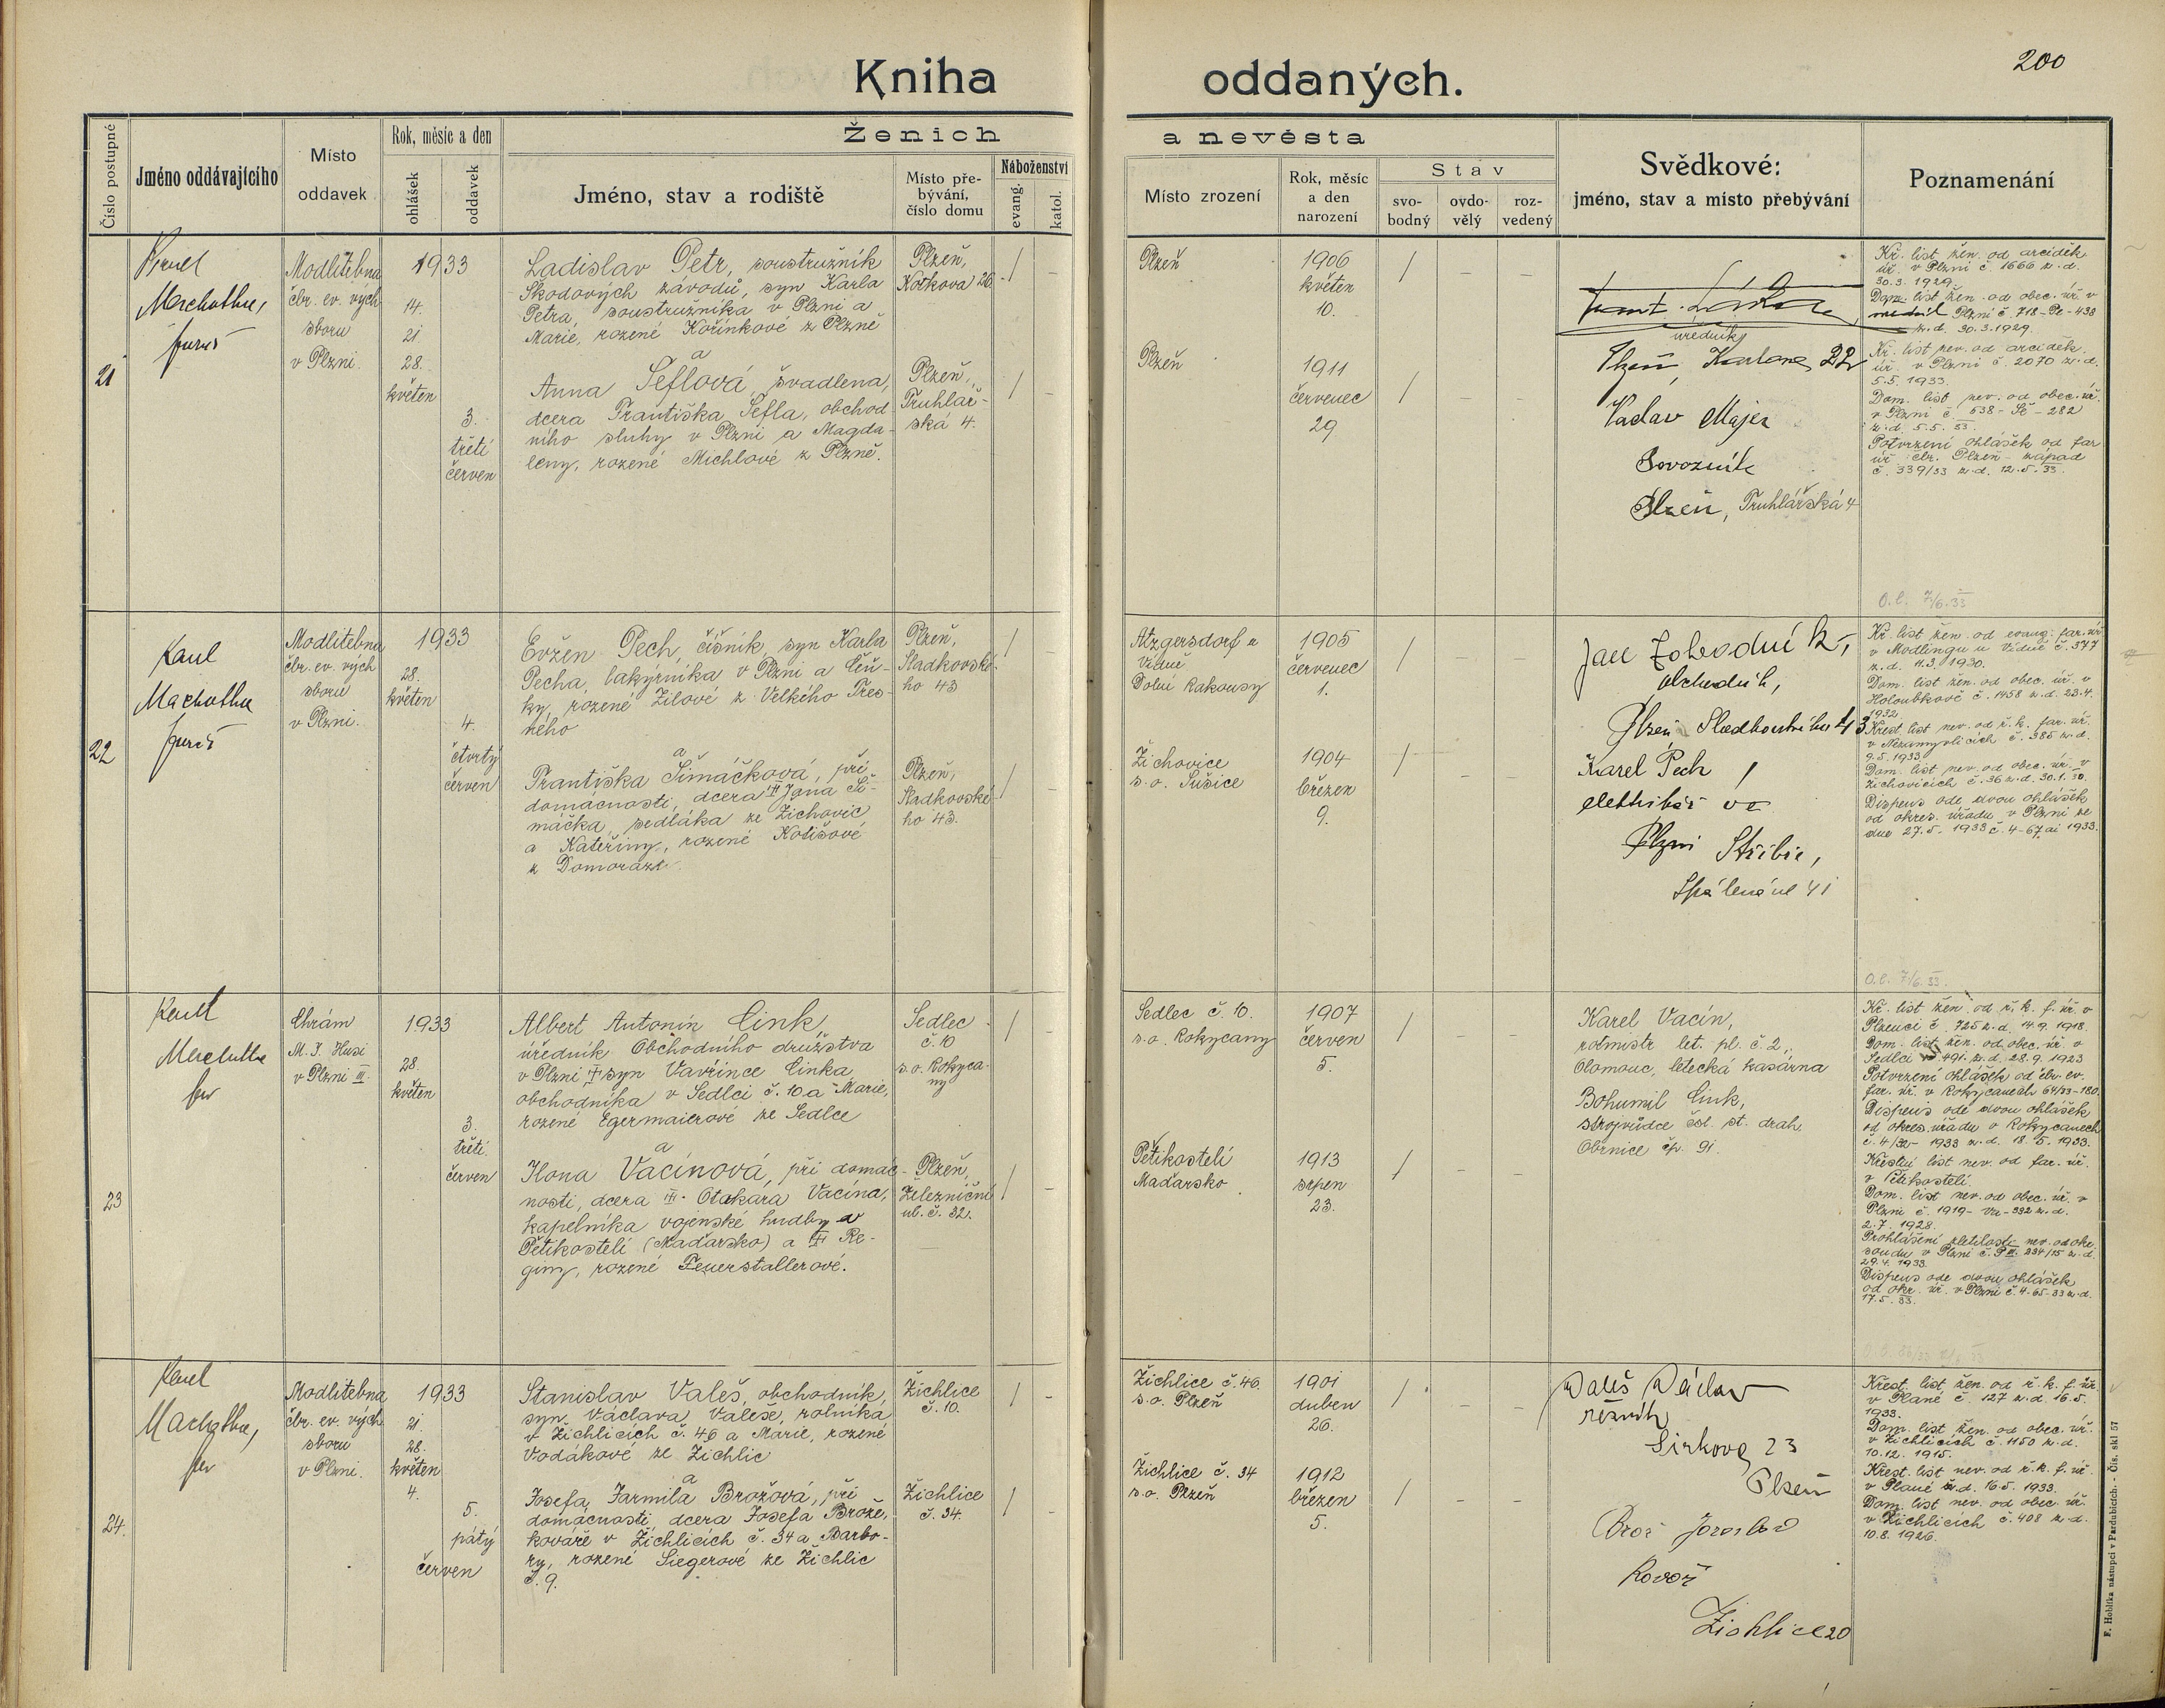 200
Kniha oddaných.
Číslo postupné
Jméno oddávajícího
Místo
oddavek
Rok, měsíc a den
ohlášek
oddavek
Ženich
a nevěsta
Jméno, stav a rodiště
Místo pře-
bývání,
číslo domu
Náboženství
evang.
katol.
Místo zrození
Rok, měsíc
a den
narození
Stav
svo-
bodný
ovdo-
vělý
roz-
vedený
Svědkové:
jméno, stav a místo přebývání
Poznamenání
21
Modlitebna
čbr. ev. vých
sboru
v Plzni.
1933
14.
21.
28.
květen
3.
třetí
červen
Ladislav Petr, soustružník
Škodových závodů, syn Karla
Petra, soustružníka v Plzni a
Marie, rozené Kořínkové z Plzně
Plzeň,
Kotkova 26
/ –
Plzeň
1906
květen
10.
/ – –
a
Anna Šeflová, švadlena,
dcera Františka Šefla, obchod
ního sluhy v Plzni a Magda-
leny, rozené Michlové z Plzně.
Plzeň,
Truhlář-
ská 4.
/ –
Plzeň
1911
červenec
29
/ – –
úředník
Plzeň, 22
Václav Majer
Plzeň, Truhlářská 4
Kř. list žen. od arciděk
úř. v Plzni č. 1666 z. d.
30.3.1929.
Dom. list žen. od obec. úř. v
Plzni č. 718-Pe-438
z. d. 30.3.1929.
Kř. list nev. od arciděk.
úř. v Plzni č. 2070 z. d.
5.5.1933.
Dom. list nev. od obec. úř.
v Plzni č. 538-Še-282
z. d. 5.5.33.
Potvrzení ohlášek od far
úř. čbr. Plzeň-západ
č. 339/33 z. d. 12.5.33.
O.l. 7/6.33
22
Modlitebna
čbr. ev. vých
sboru
v Plzni.
1933
28.
květen
4.
čtvrtý
červen
Evžen Pech, číšník, syn Karla
Pecha, lakýrníka v Plzni a Ciň-
ky, rozené Žilové z Velkého Třes-
ného
Plzeň,
Sladkovské-
ho 43
/ –
Atzgersdorf u
Vídně
Dolní Rakousy
1905
červenec
1.
/ – –
a
Františka Šimáčková, při
domácnosti, dcera Jana Ši-
máčka, sedláka ze Žichovic
a Kateřiny, rozené Kotišové
z Domoraze.
Plzeň,
Sladkovské-
ho 43.
/ –
Žichovice
s. o. Sušice
1904
březen
9.
/ – –
obchodník,
Plzeň
Karel Pech
Plzni
Kř. list žen. od evang. far. úř
v Modlingu u Vídně č. 377
z. d. 11.3.1930.
Dom. list žen. od obec. úř. v
Holoubkově č. 1458 z. d. 23.4.
1932
Křest. list nev. od ř. k. far. úř.
v Nezamyslicích č. 385 z. d.
9.5.1933.
Dom. list nev. od obec. úř. v
Žichovicích č. 36 z. d. 30.1.30.
Dispens ode dvou ohlášek
od okres. úřadu v Plzni ze
dne 27.5.1933 č. 4-67 ai 1933.
O.l. 7/6.33.
23
Chrám
M. J. Husi
v Plzni III.
1933
28.
květen
3.
třetí
červen
Albert Antonín Cink,
úředník Obchodního družstva
v Plzni syn Vavřince Cinka
obchodníka v Sedlci č. 10 a Marie,
rozené Egermaierové ze Sedlce
Sedlec
č. 10
s. o. Rokyca-
ny
/ –
Sedlec č. 10.
s. o. Rokycany
1907
červen
5.
/ – –
a
Ilona Vacínová, při domác-
nosti, dcera Otakara Vacína,
kapelníka vojenské hudby v
Pětikostelí (Maďarsko) a Re-
giny, rozené Feuerstallerové.
Plzeň,
Železniční
ul. č. 32.
/ –
Pětikostelí
Maďarsko
1913
srpen
23.
/ – –
Karel Vacín,
rotmistr let. pl. č. 2.,
Olomouc, letecká kasárna
Bohumil Cink,
strojvůdce čsl. st. drah
Obrnice čp. 91.
Kř. list žen. od ř. k. f. úř. v
Plzenci č. 725 z. d. 14.9.1918.
Dom. list žen. od obec. úř. v
Sedlci 491. z. d. 28.9.1923
Potvrzení ohlášek od čbr. ev.
far. úř. v Rokycanech 64/33-180.
Dispens ode dvou ohlášek
od okres. úřadu v Rokycanech
č. 4/32- 1933 z. d. 18.5.1933.
Křestní list nev. od far. úř.
v Pětikostelí.
Dom. list nev. od obec. úř. v
Plzni č. 1919-Va-332 z. d.
2.7.1928.
Prohlášení zletilosti nev. od okr.
soudu v Plzni č. P III. 234/15 z. d.
29.4.1933.
Dispens ode dvou ohlášek
od okr. úř. v Plzni č. 4-65-33 z. d.
17.5.33.
24.
Modlitebna
čbr. ev. vých
sboru
v Plzni.
1933
21.
28.
květen
4.
5.
pátý
červen
Stanislav Valeš, obchodník,
syn Václava Valeše, rolníka
v Žichlicích č. 46 a Marie, rozené
Vodákové ze Žichlic
Žichlice
č. 10.
/ –
Žichlice č. 46
s. o. Plzeň
1901
duben
26.
/ – –
a
Josefa Jarmila Brožová, při
domácnosti, dcera Josefa Brože,
kováře v Žichlicích č. 34 a Barbo-
ry, rozené Siegerové ze Žichlic
č. 9.
Žichlice
č. 34.
/ –
Žichlice č. 34
s. o. Plzeň
1912
březen
5.
/ – –
Valeš Václav
řezník
Sirkova 23
Plzeň
Brož Jaroslav
Kovář
Žichlice 20
Křest. list žen. od ř. k. f. úř.
v Plané č. 127 z. d. 16.5.
1933.
Dom. list žen. od obec. úř.
v Žichlicích č. 1150 z. d.
10.12.1915.
Křest. list nev. od ř. k. f. úř.
v Plané z. d. 16.5.1933.
Dom. list nev. od obec. úř.
v Žichlicích č. 408 z. d.
10.8.1926.
F. Hoblíka nástupci v Pardubicích. - Čís. skl 57